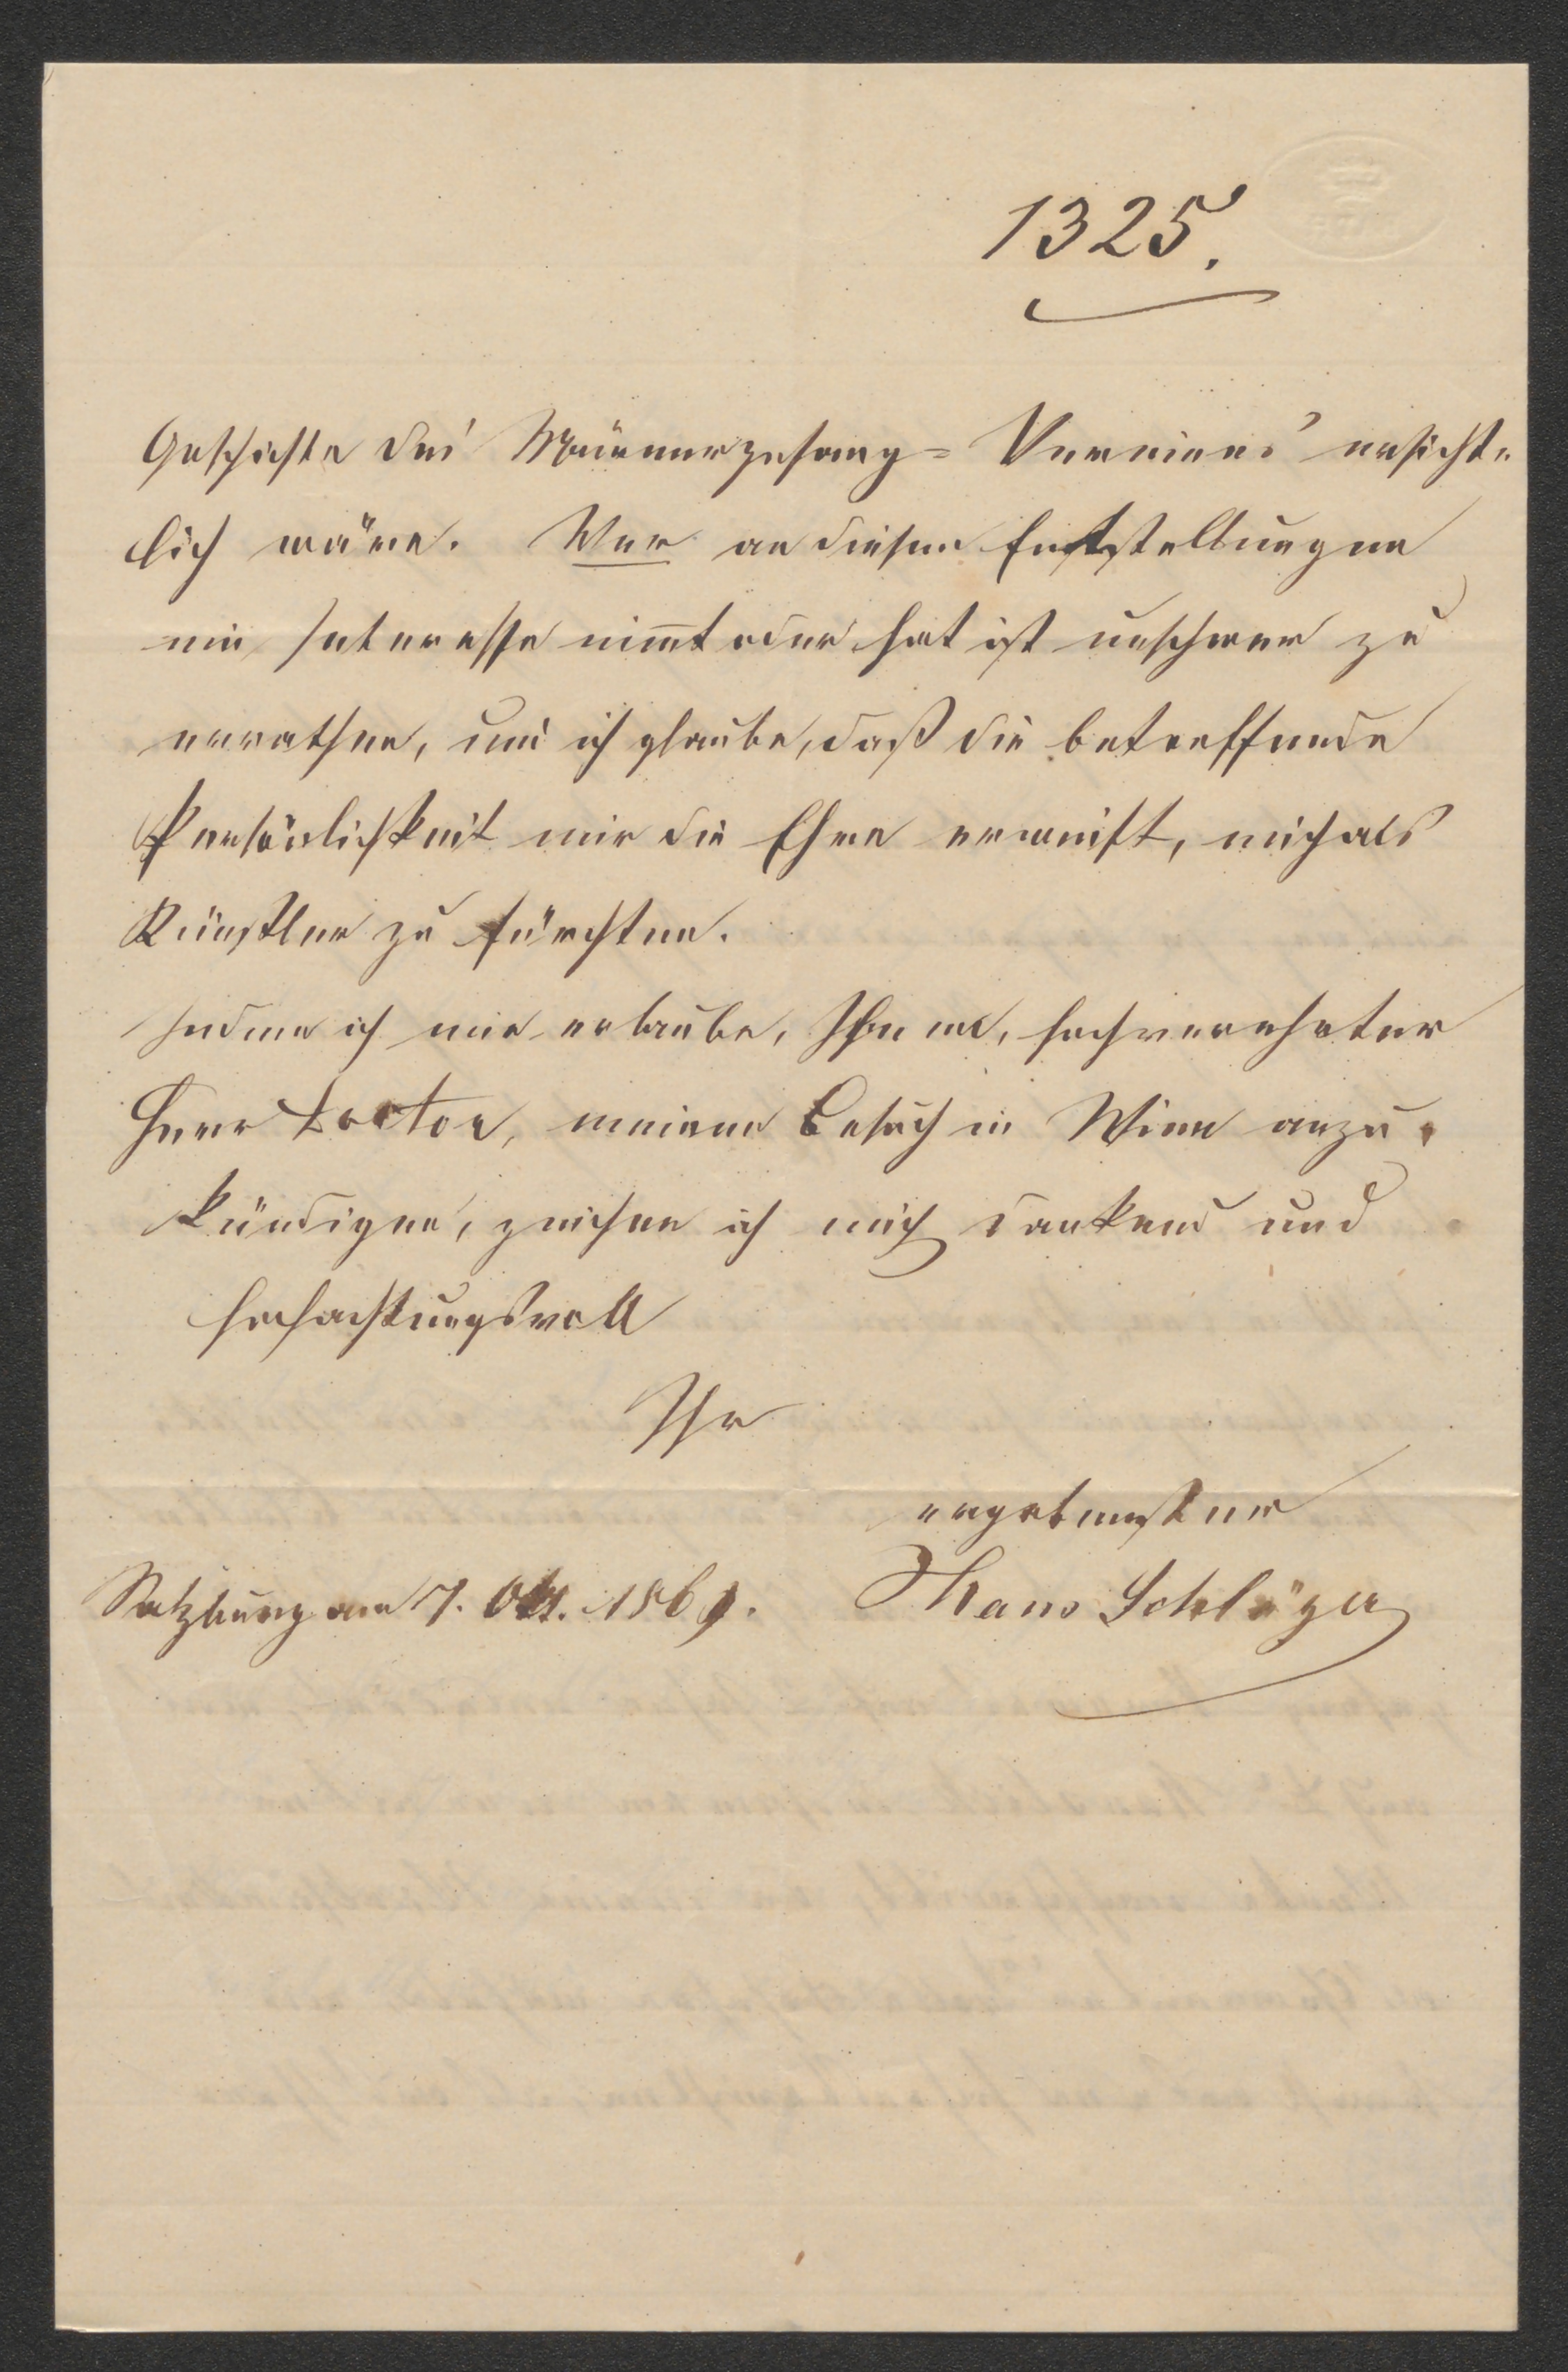 1325.
Geschichte des Männergesang=Vereines ersicht=
lich wäre. Wer an diesen Entstellungen
ein Interesse nimmt oder hat ist unschwer zu
errathen, und ich glaube, daß die betreffende
Persönlichkeit mir die Ehre erweist, mich als
Künstler zu fürchten.
Indem ich mir erlaube, Ihnen, hochverehrter
Herr Doctor, meinen Besuch in Wien anzu=
kündigen, zeichne ich mich dankend und
hochachtungsvoll
Ihr
ergebenster
Salzburg am 7. Okt. 1869. Hans Schläger